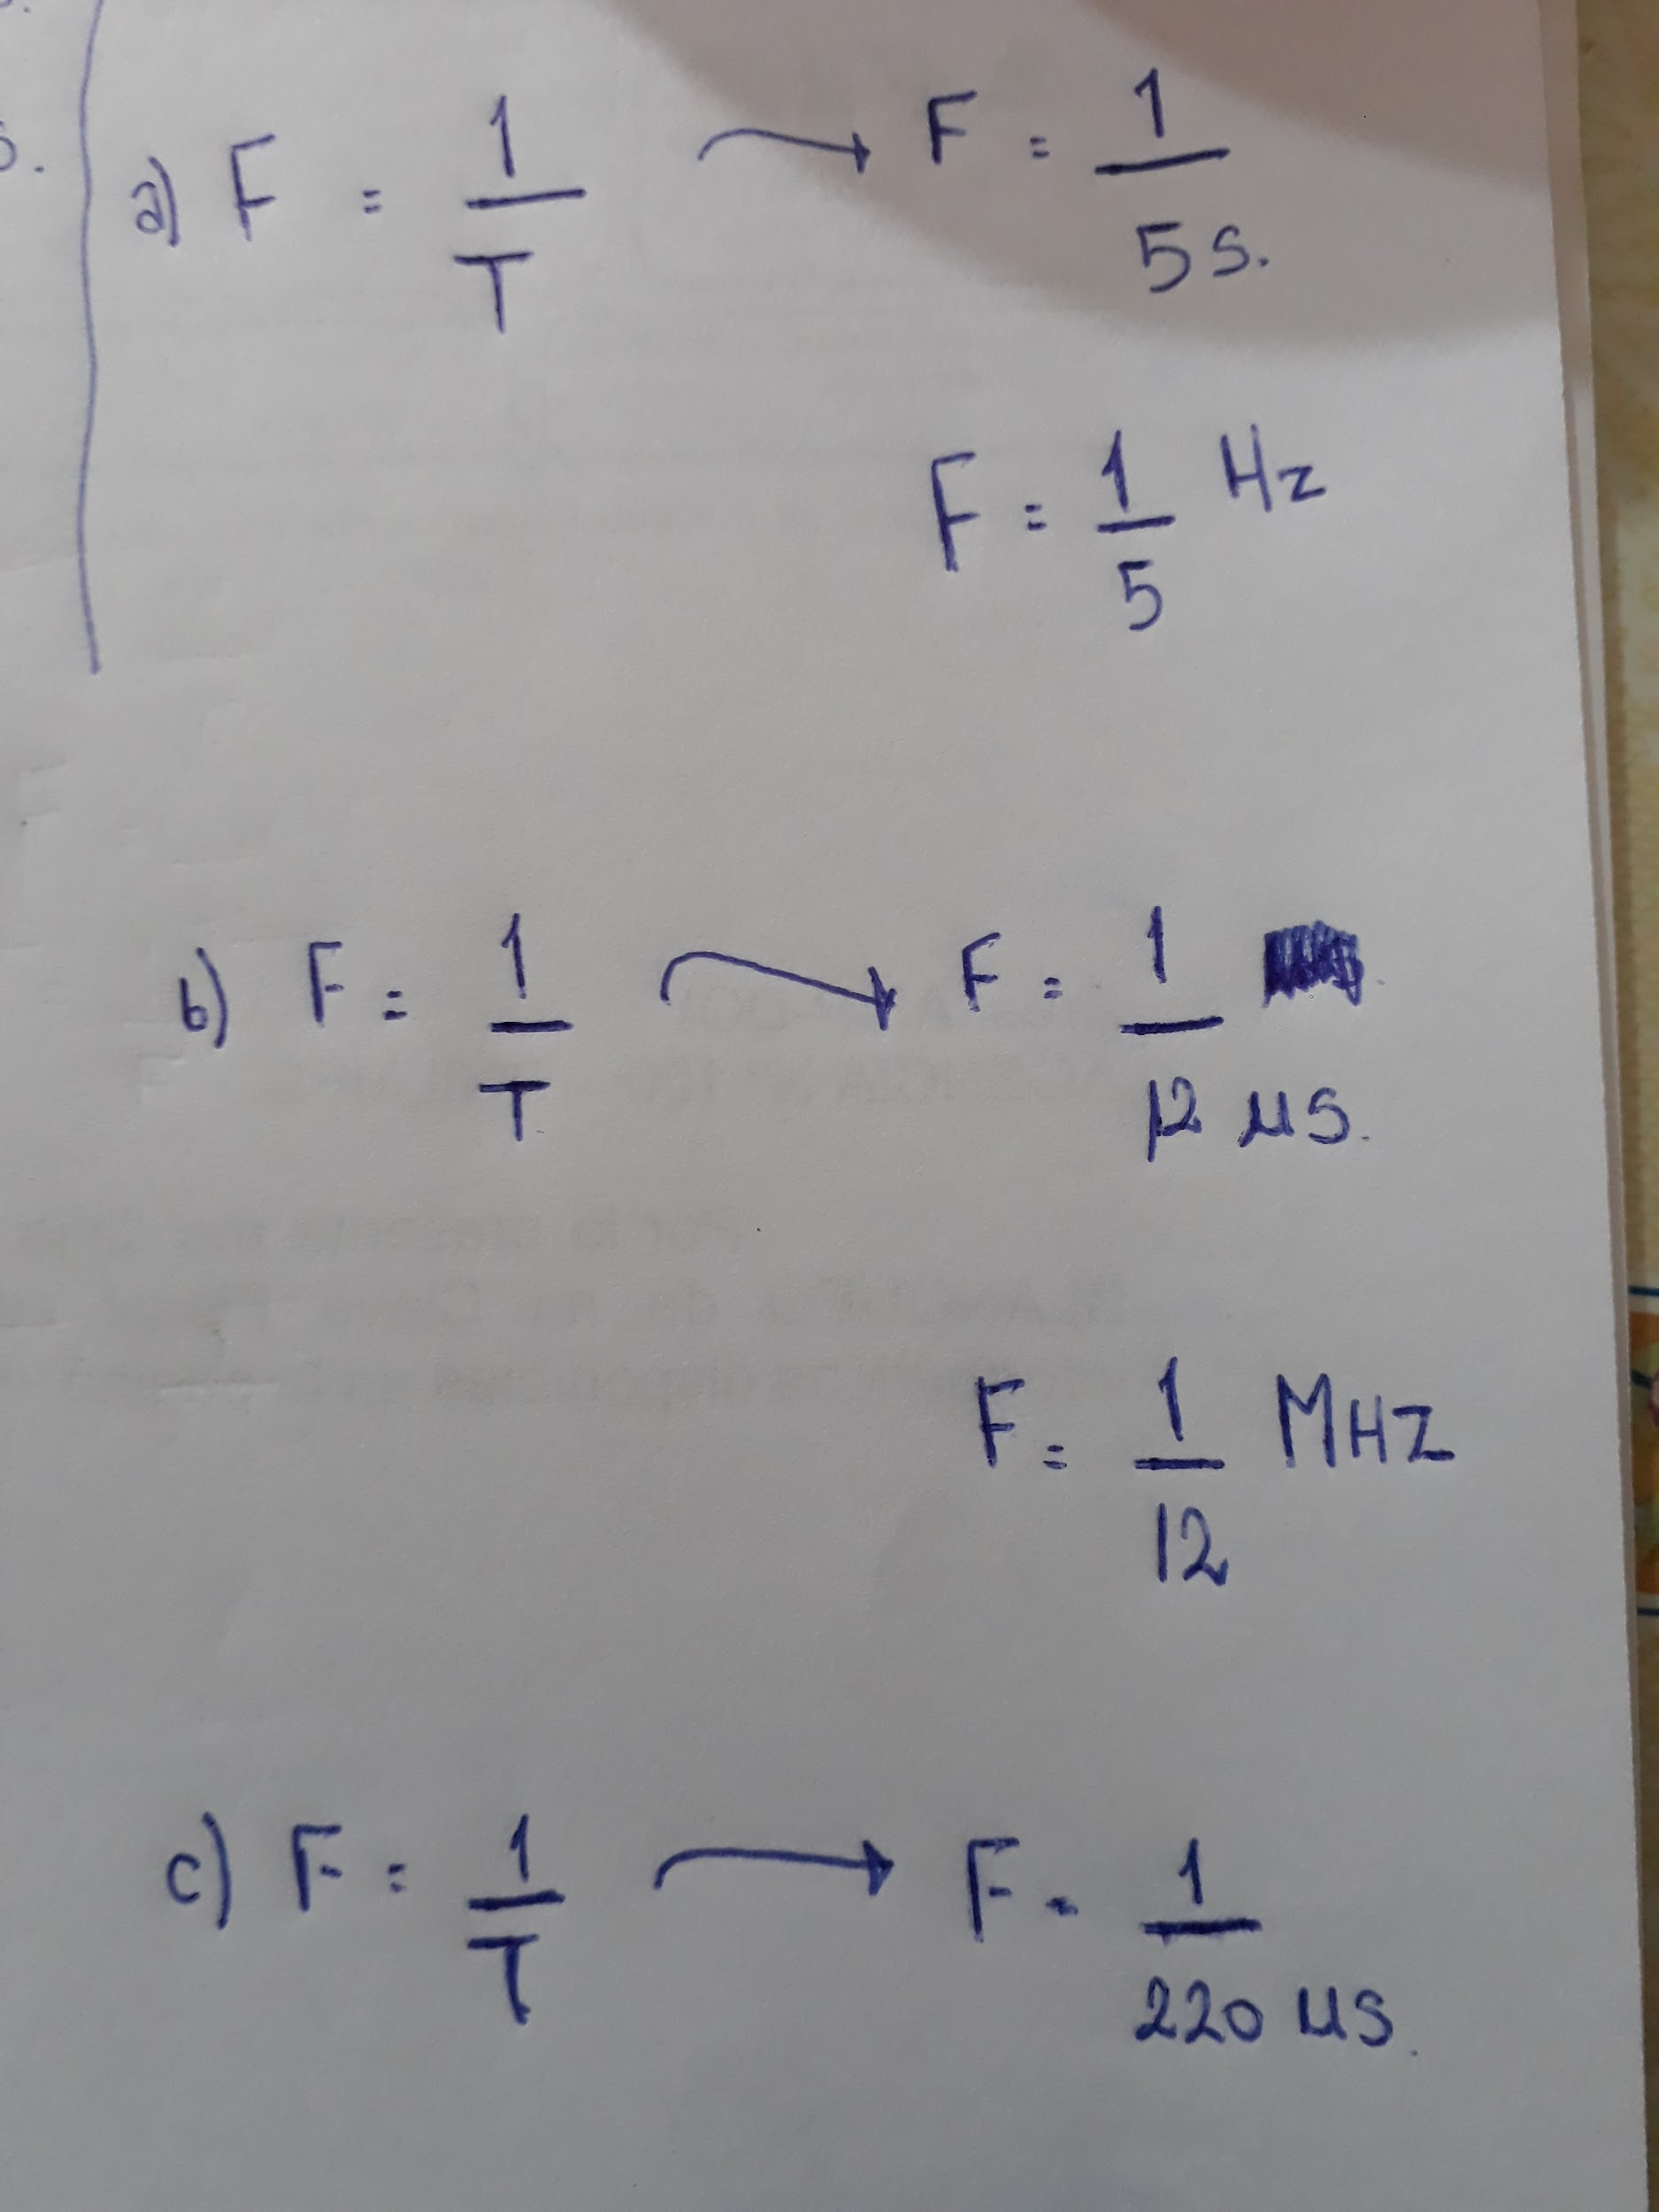 s.
a) F = 1/T → F = 1/5 s.
F = 1/5 Hz
b) F = 1/T → F = 1/12 µs.
F = 1/12 MHz
c) F = 1/T → F = 1/220 µs.